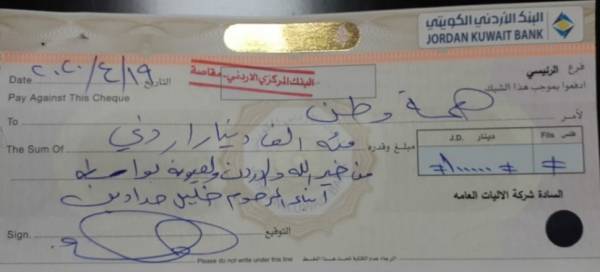 البنك الأردني الكويتي
JORDAN KUWAIT BANK
فرع الرئيسي
Date ٢٠٢٠/٤/١٩ التاريخ
البنك المركزي الاردني - مقاصة
ادفعوا بموجب هذا الشيك
Pay Against This Cheque
To همة وطن لأمر
The Sum Of مئه الف دينار اردني مبلغ وقدره
دينار J.D. فلس Fils
#١٠٠٠٠٠/ #
من خير الله والاردن ولعيونه بواسطة
ابناء المرحوم خليل حدادين
السادة شركة الاليات العامه
Sign. التوقيع
Please do not write under this line